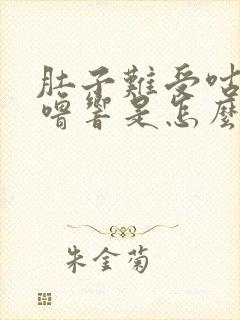 肚子難受咕
嚕響是怎麼
朱金菊